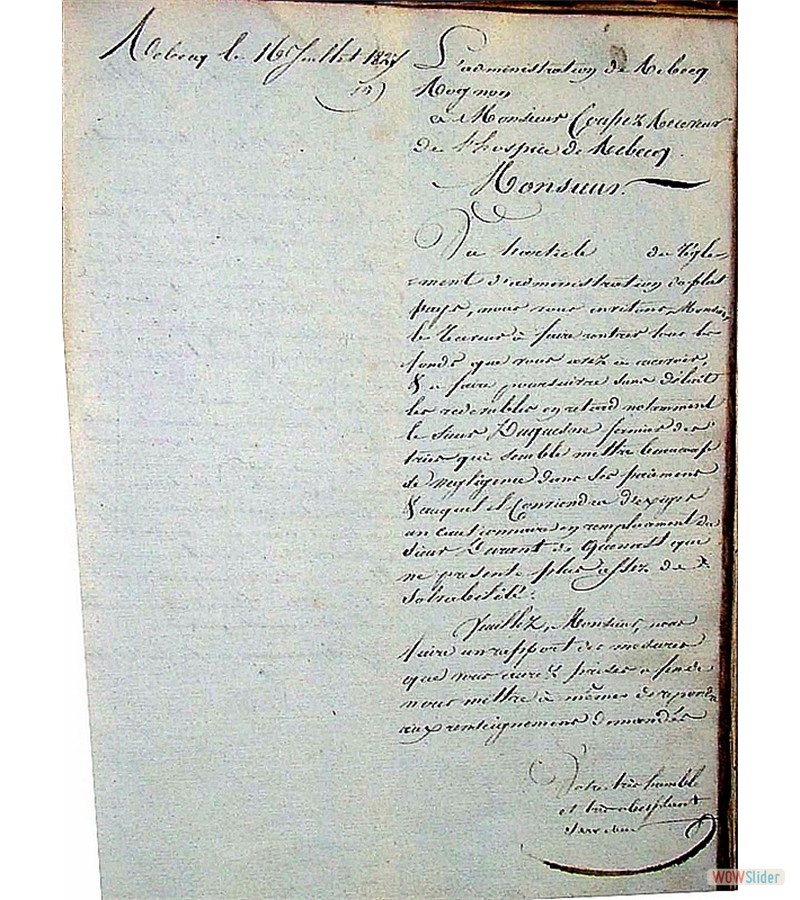 Rebecq le 16 Juillet 182
L'administration de Rebecq
Rognon
à Monsieur Coupez Receveur
de l'hospice de Rebecq.
Monsieur.
Vu l'article du règle-
-ment d'administration du plat
pays, nous vous invitons Monsieur
le à faire rentrer tous les
fonds que vous avez à recevoir,
& à faire poursuivre sans délai
les redevables en retard notamment
le sieur Duquesne fermier des
qui semble mettre beaucoup
de négligence dans ses paiemens
& auquel il conviendra d'exiger
un cautionnaire en remplacement du
sieur Durant de Quenast qui
ne présente plus assez de
solvabilité.
Veuillez, Monsieur, nous
faire un rapport des mesures
que vous aurez prises afin de
nous mettre à même de répondre
aux renseignemens demandés
Votre très humble
et très obéissant
serviteur
WOWSlider